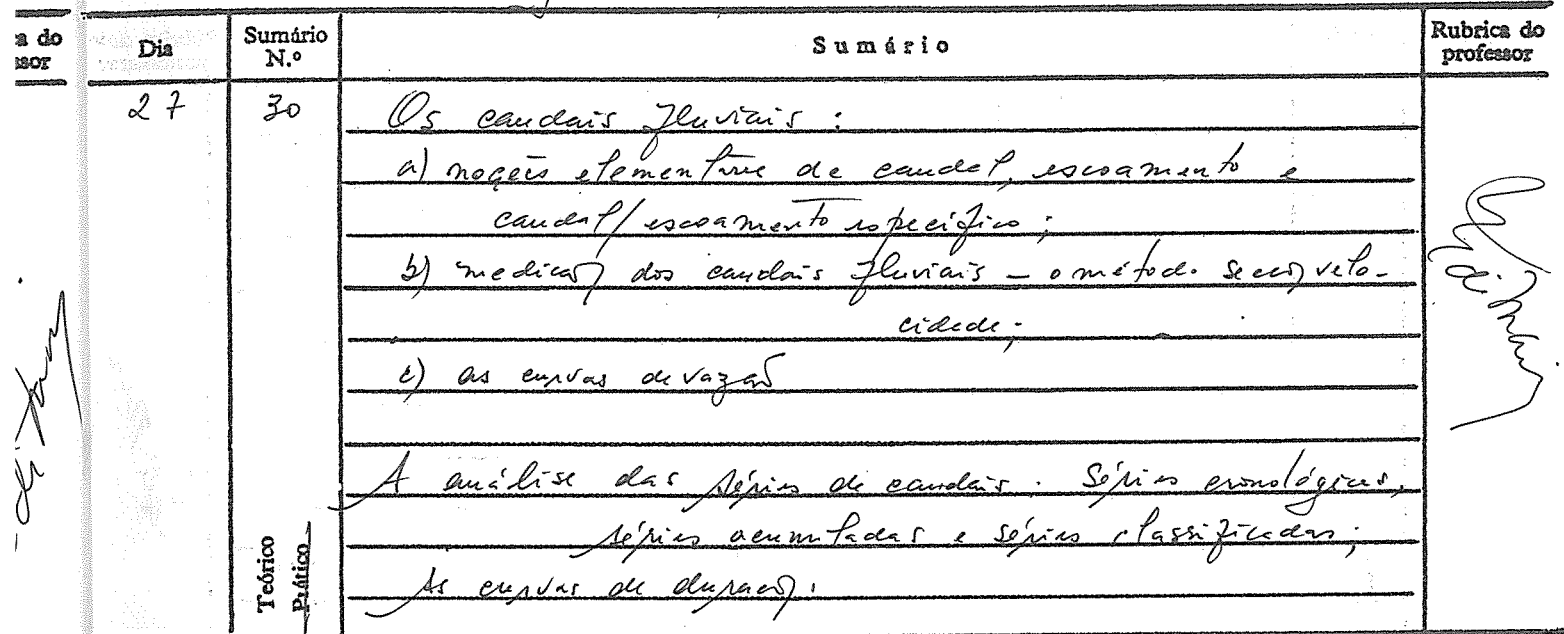 a do
ssor
Dia
Sumário
N.º
Sumário
Rubrica do
professor
27 30 Os caudais fluviais :
a) noções elementares de caudal, escoamento e
caudal/escoamento específico ;
b) medição dos caudais fluviais – o método secção velo-
cidade ;
c) as curvas de vazão
A análise das séries de caudais . Séries cronológicas,
séries acumuladas e séries classificadas ;
As curvas de duração.
Teórico
Prático